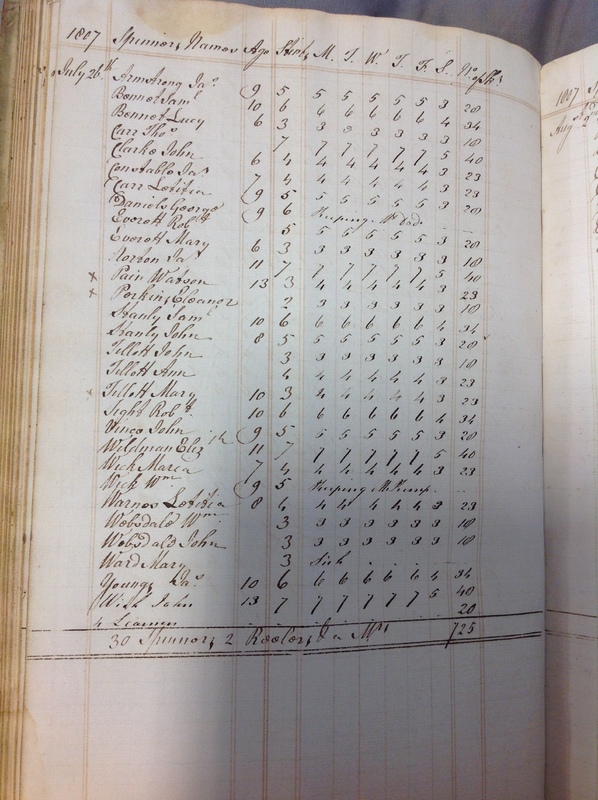 1807 Spinners Names Age Stint M. T. W. T. F. S. No of Sks
July 26th Armstrong Jas 9 5 5 5 5 5 5 3 28
Bennet Saml 10 6 6 6 6 6 6 4 34
Bennet Lucy 6 3 3 3 3 3 3 3 18
Carr Thos 7 7 7 7 7 7 5 40
Clarke John 6 4 4 4 4 4 4 3 23
Constable Jas 7 4 4 4 4 4 4 3 23
Carr Letitia 9 5 5 5 5 5 5 3 28
Daniels George 9 6 Keeping
Everett Robt 5 5 5 5 5 5 3 28
Everett Mary 6 3 3 3 3 3 3 3 18
Norton Jas 11 7 7 7 7 7 7 5 40
x Pain Watson 13 3 4 4 4 4 4 3 23
x Perkins Eleanor 3 3 3 3 3 3 18
Stanly Saml 10 6 6 6 6 6 6 4 34
Stanly John 8 5 5 5 5 5 5 3 28
Tillott John 3 3 3 3 3 3 3 18
Tillott Ann 4 4 4 4 4 4 3 23
x Tillott Mary 10 3 4 4 4 4 4 3 23
Robt 10 6 6 6 6 6 6 4 34
Vince John 9 5 5 5 5 5 5 3 28
Wildman Elizth 11 7 7 7 7 7 7 5 40
Wick Maria 7 4 4 4 4 4 4 3 23
Wick Wm 9 5 Keeping
Warnes Letitia 8 4 4 4 4 4 4 3 23
Websdale Wm 3 3 3 3 3 3 3 18
Websdale John 3 3 3 3 3 3 3 18
Ward Mary 3 Sick
Youngs Jas 10 6 6 6 6 6 6 4 34
Wick John 13 7 7 7 7 7 7 5 40
4 Learners 20
30 Spinners, 2 Reelers, 725
1807
Augst